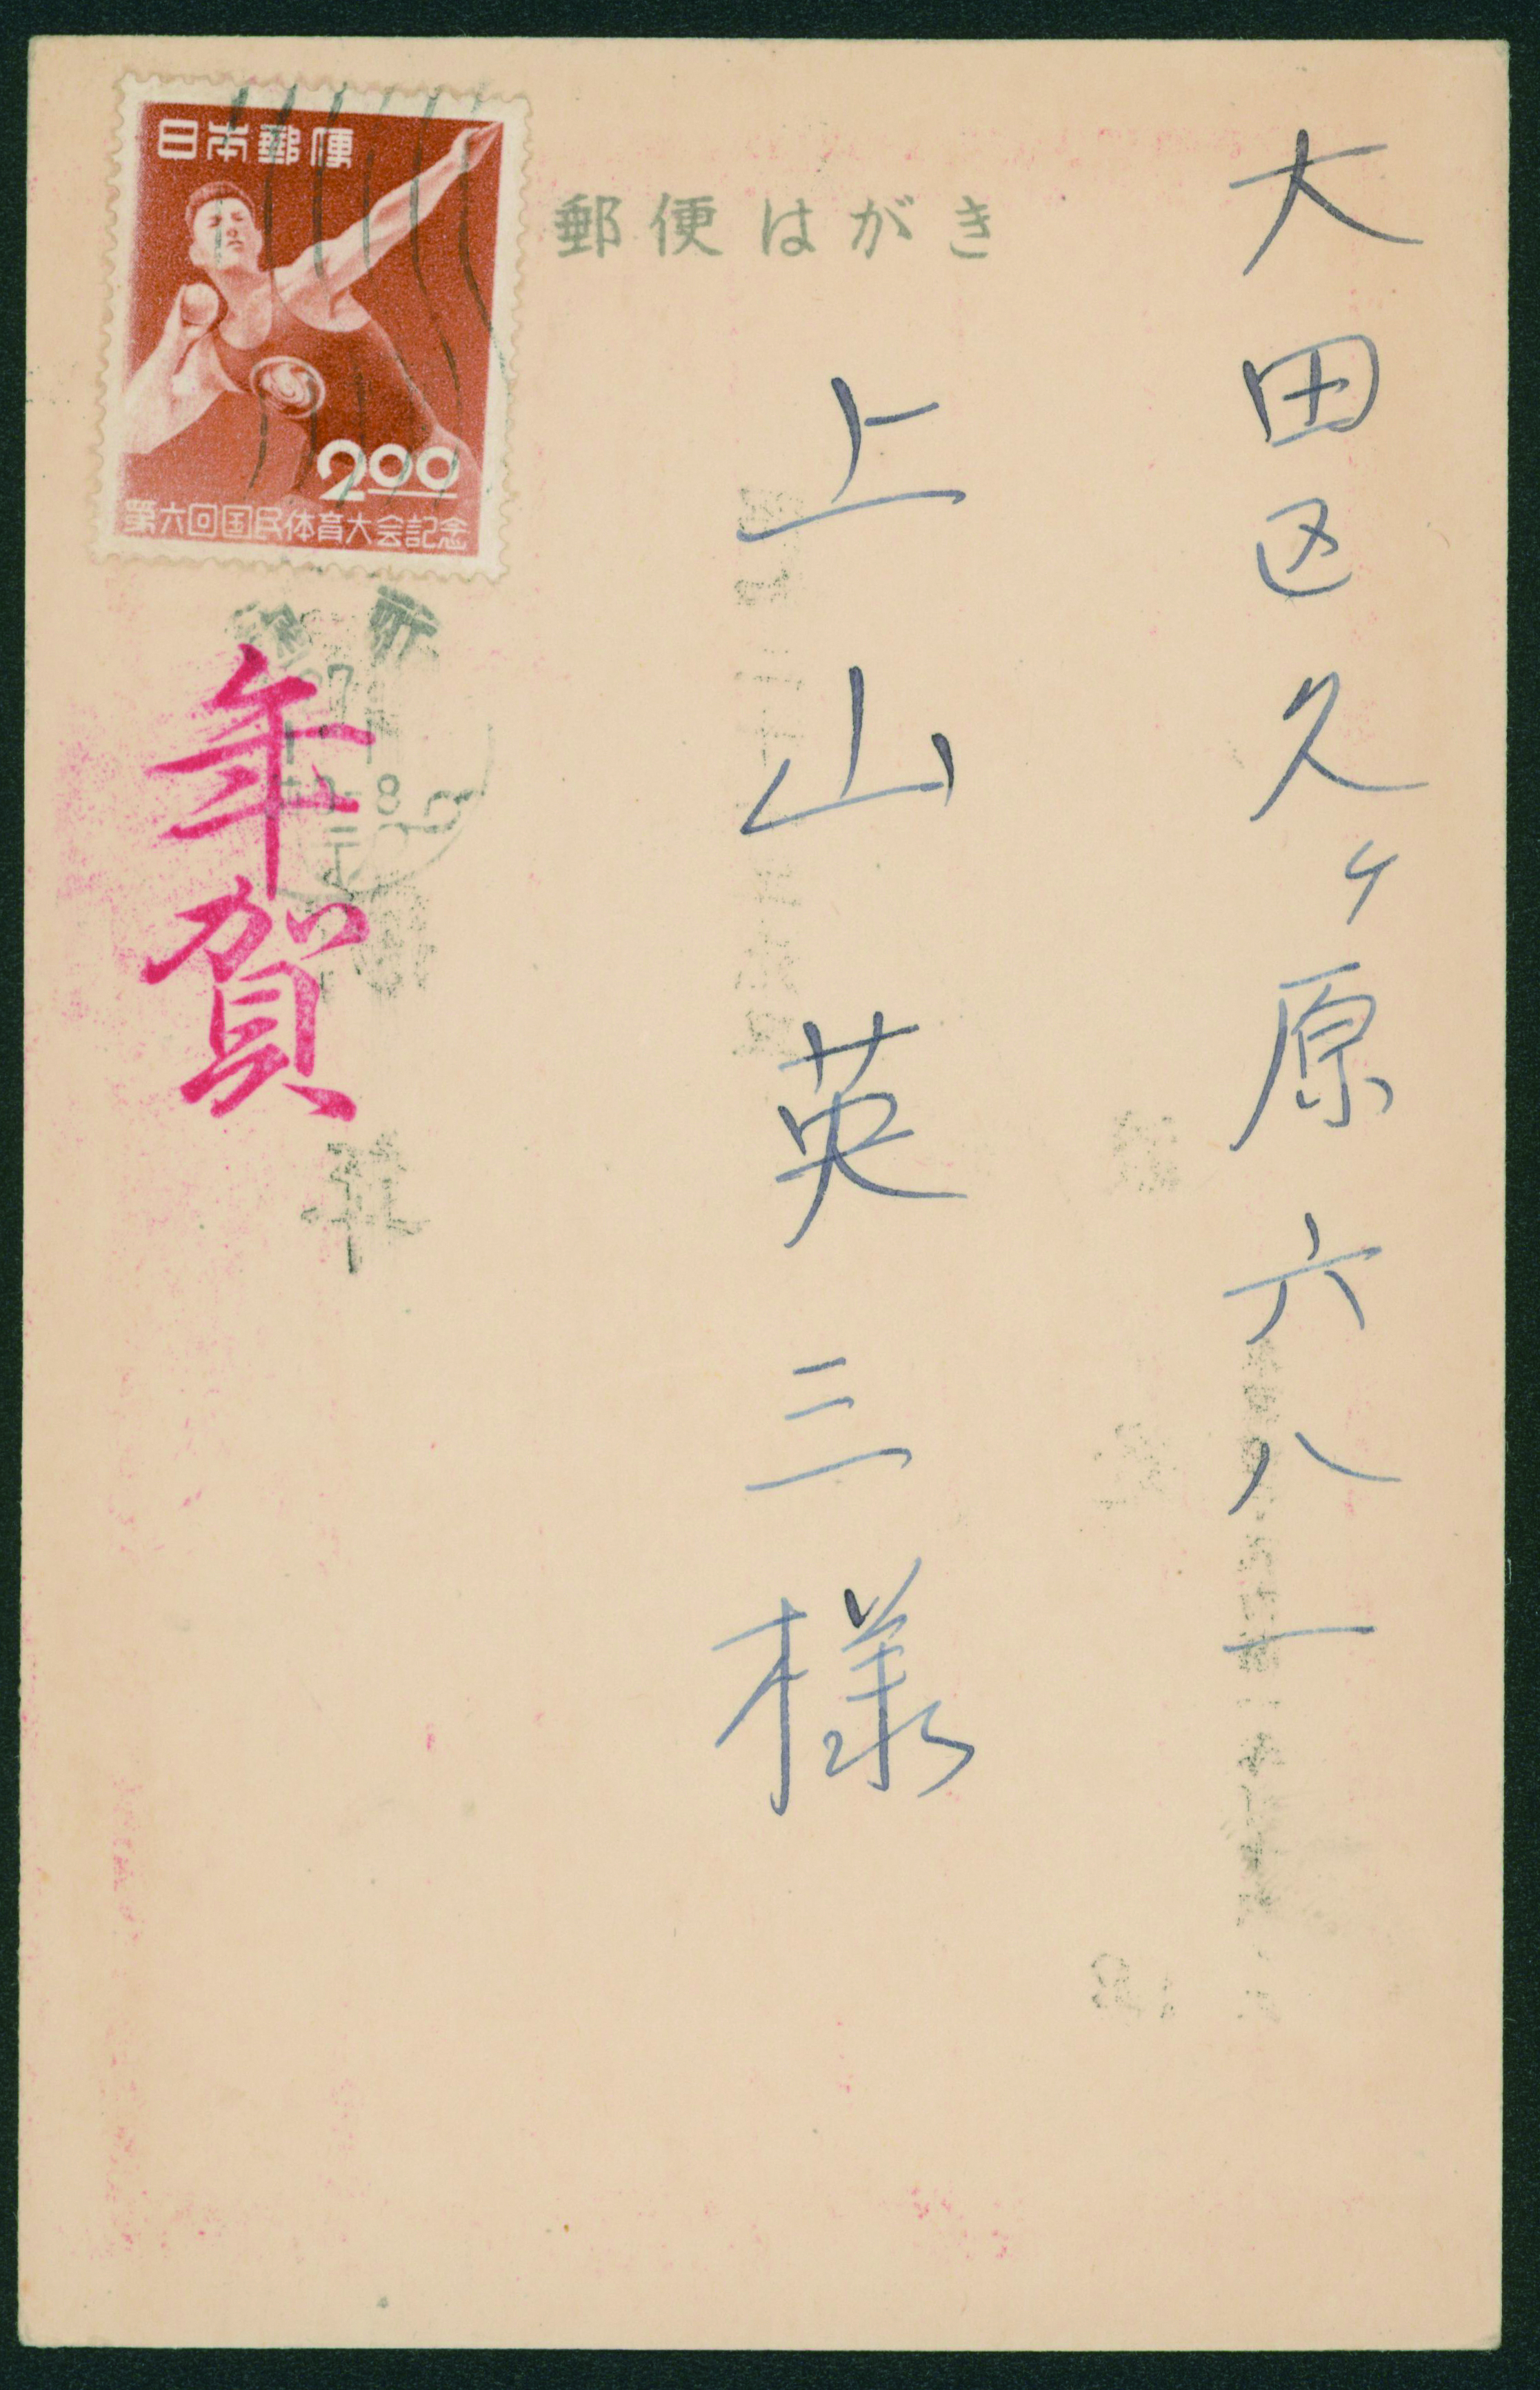 大田区久ヶ原六八一
上山英三様
郵便はがき
日本郵便
2.00
第六回国民体育大会記念
年賀
27